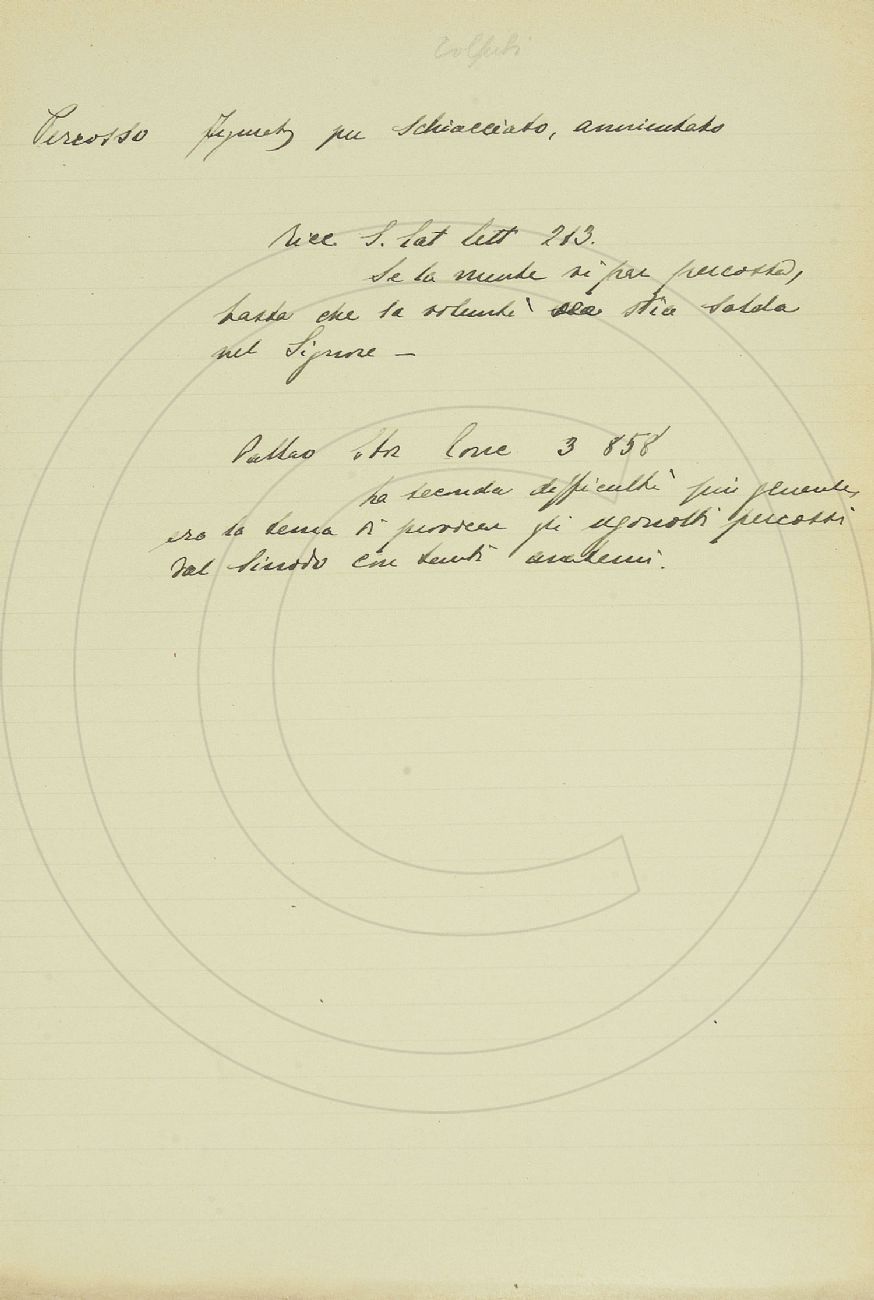 Percosso figurato per schiacciato, annientato
Ricc S. Cat lett 213.
Se la mente vi par percossa,
basta che la volontà stia salda
nel Signore –
Pallav Stor Conc 3 858
La seconda difficoltà più generale,
era la tema di provocar gli ugonotti percossi
dal Sinodo con tanti anatemi.